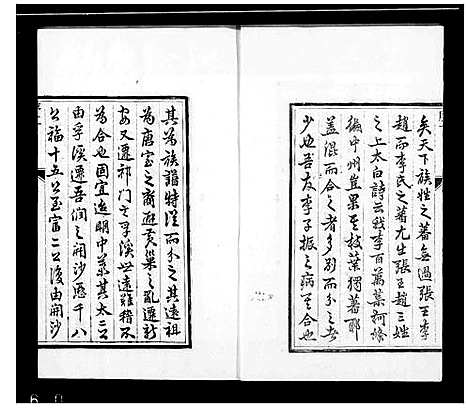 矣天下族姓之蕃無過張王李
趙而李氏之著尤在張王趙三姓
之上太白詩云我李百萬葉柯條
徧中州豈果其枝葉獨蕃耶
蓋混而合之者多別而分之者
少也吾友李子振之病其合也
其為族譜特溼而分之其遠祖
為唐室之裔避黃巢之亂遷新
安又遷祁門之孚溪世遠難稽不
為合也固宜迨明中葉其太二公
由孚溪遷吾閏之開沙憑千八
公福十五公至富二公後由開沙